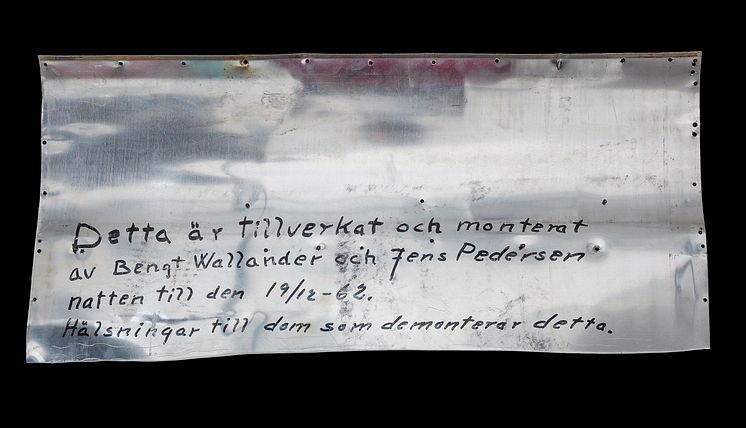 Detta är tillverkat och monterat
av Bengt Wallander och Jens Pedersen
natten till den 19/12-62.
Hälsningar till dom som demonterar detta.